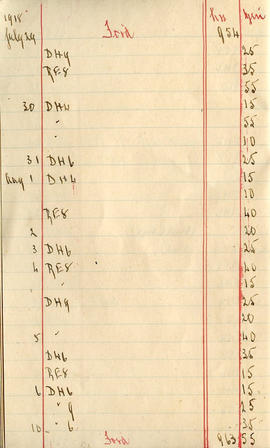 1918 Hrs Min
July 29 Ford 954
DH9 25
RE8 35
55
30 DH4 15
" 55
" 10
31 DH6 25
Aug 1 DH4 15
10
RE8 40
2 20
3 DH6 25
4 RE8 40
" 15
DH9 25
20
5 " 40
DH6 35
RE8 15
6 DH6 15
" 9 25
10 " 6 35
Ford 963 55